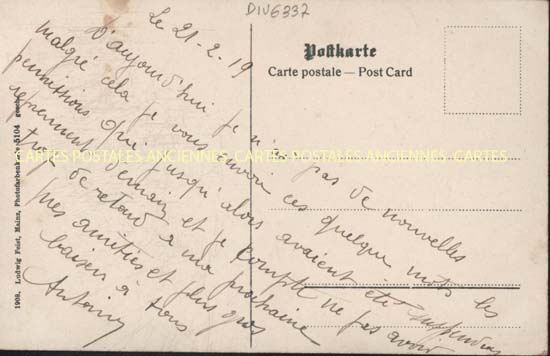 DIV6337
Le 21-2-19
D'aujourd'hui je n'ai pas de nouvelles
malgré cela je vous envoi ces quelque mots les
permissions qui jusqu'alors avaient été suspendues
reprennent demain et je compte ne pas avoir
trop de retard à ma prochaine
mes amitiés et plus gros
baisers à tous
Antoine
Postkarte
Carte postale — Post Card
1908. Ludwig Feist, Mainz, Photofarbenk. 5104 gesch.
CARTES POSTALES ANCIENNES CARTES POSTALES ANCIENNES CARTES